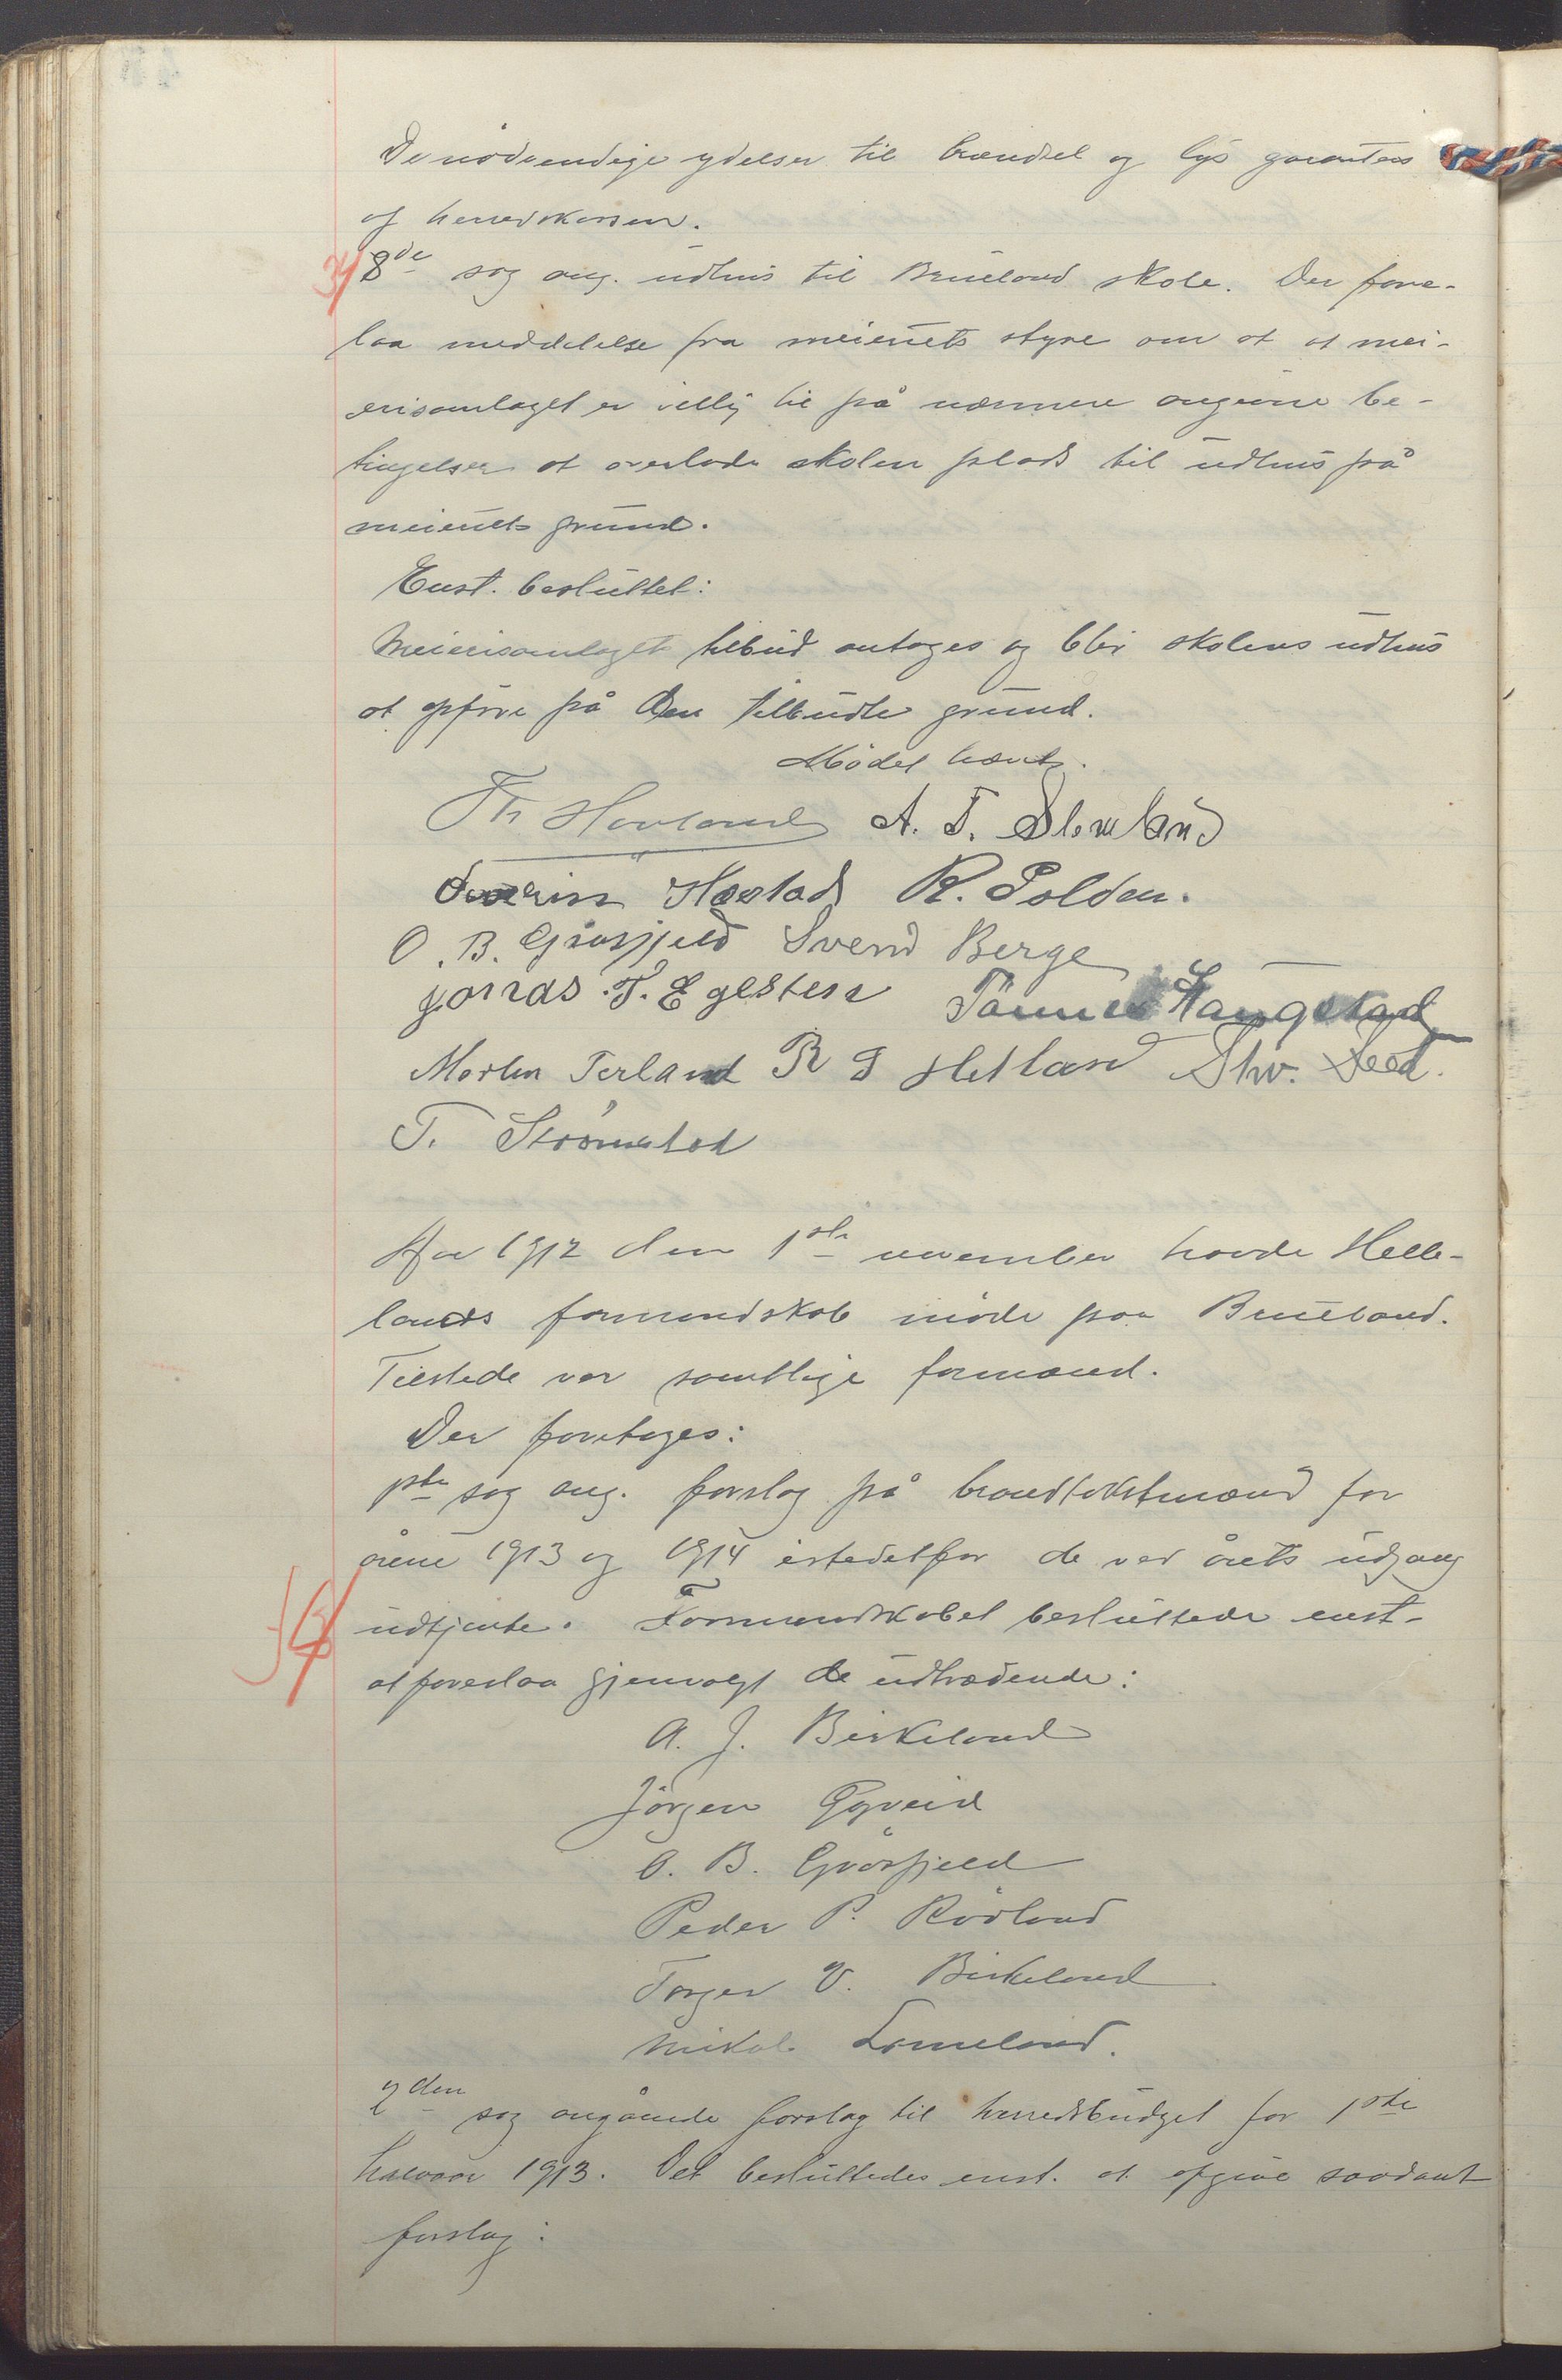 De nödvendige ydelser til brændsel og lys garanteres
af herredskassen.
8de sag ang. udhus til Brueland skole. Der fore-
laa meddelelse fra meieriets styre om at at mei-
erisamlaget er villig til på nærmere angivne be-
tingelser at overlade skolen plads til udhus på
meieriets grund.
Enst. besluttet:
Meierisamlagets tilbud antages og blir skolens udhus
at opföre på den tilbudte grund.
Mödet hævt.
Th Hovland A. T. Slewland
Sverin Hæstad R. Polden.
O. B. Gråsfjeld Svend Berge
Jonas T. Egesten Tönnes Haugstad
Morten Terland R S Hetland Skv. Leed.
T. Strömstad
Aar 1912 den 1ste november havde Helle-
lands formandskab möde paa Brueland.
Tilstede var samtlige formænd.
Der foretoges:
1ste sag ang. forslag på brandtakstmænd for
årene 1913 og 1914 istedetfor de ved årets udgang
udtjente. Formandskabet besluttede enst.
at foreslaa gjenvalgt de udtrædende:
A. J. Birkeland
Jörgen Gyveid
O. B. Gråsfjeld
Peder P. Rödland
Torger V. Birkeland
Mikal Lomeland.
2den sag angående forslag til herredsbudget for 1ste
halvaar 1913. Det besluttedes enst. at afgive saadant
forslag: